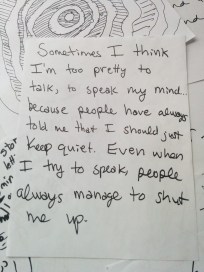 Sometimes I think
I'm too pretty to
talk, to speak my mind...
because people have always
told me that I should just
keep quiet. Even when
I try to speak, people
always manage to shut
me up.